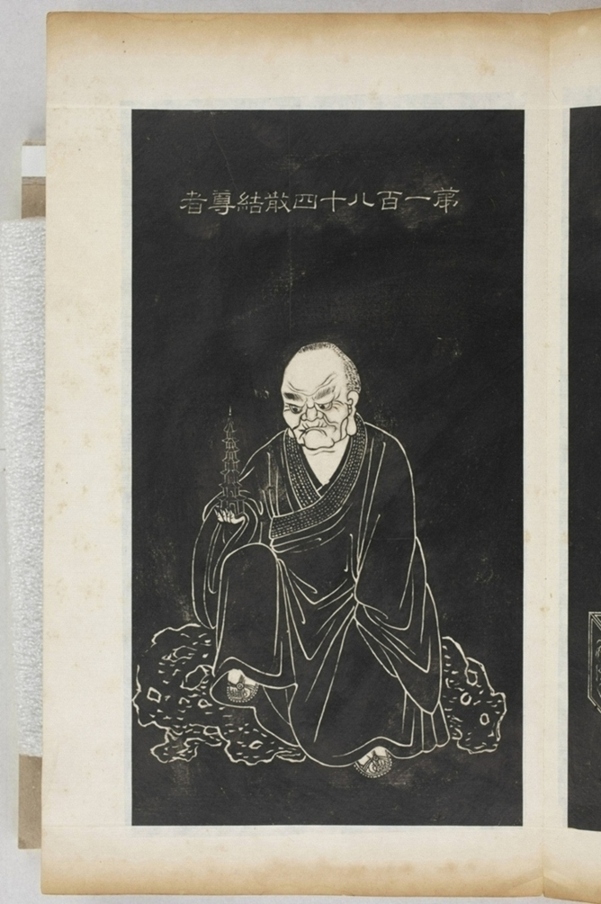 苐一百八十四散結尊者